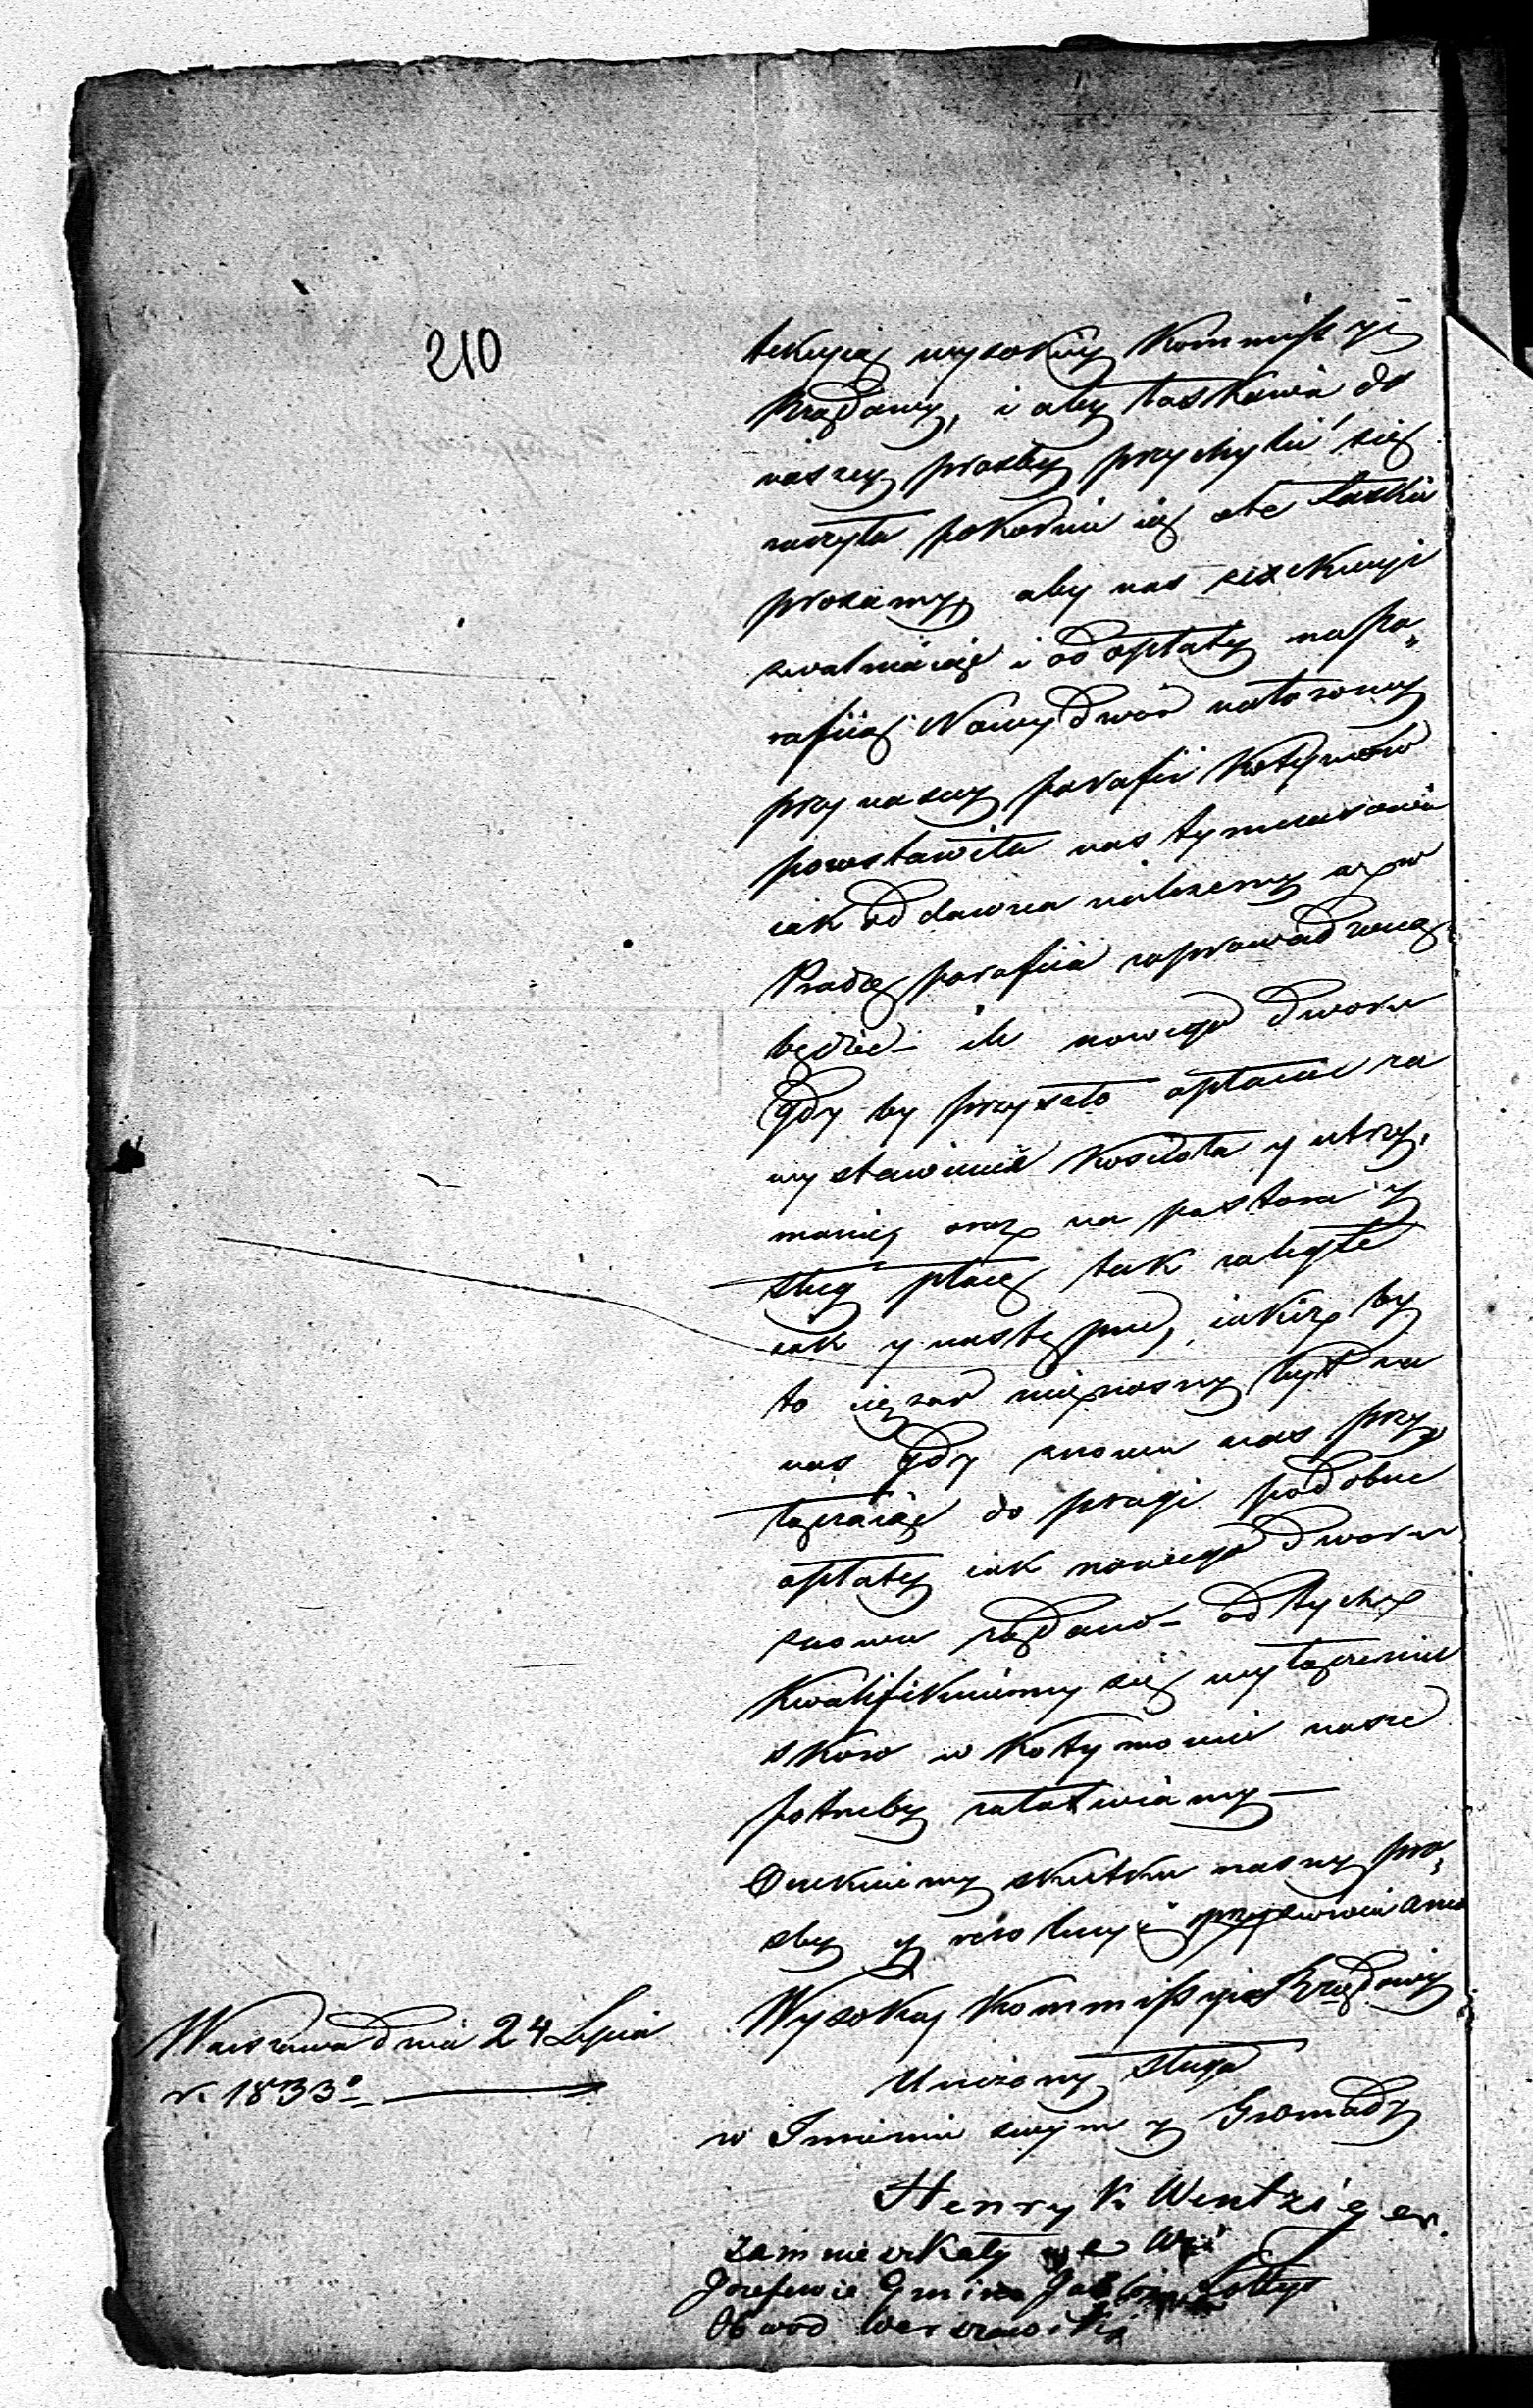 210
tekcyią wysokiey Kommissyi
Rządowey, i aby łaskawie do
naszey prosby przychylić się
raczyła pokornie ią o te Łaskie
prosiemy, aby nas z exekucyi
zwalniaiąc i od opłaty na pa„
rafiią Nowy dwór nałozoney
przy naszey parafii Kotymów
powstawiła nas tymczasowie
iak od dawna nalezemy az w
Pradze parafiia zaprowadzona
będzie – ile nowego Dworu
gdy by przyszło opłacać za
wystawienie Koscioła y utrzy„
manie, oraz na pastora y
sług płacę tak zaległe
iak y nastę pne, iakiz by
to cięzar nieznosny był na
nas gdy znowu nas przy„
łączaiąc do pragi podobne
opłaty iak nowego Dworu
znowu ządano – od tychz
Kwalifikuiemy się wyłączenia
skoro w Kotymowie nasze
potrzeby załatwiamy —
Oczekuiemy skutku naszey pro„
sby y rezolucyi
Wysokiey Kommissyi Rządowey
Unizony sługa
w Imieniu swym y Gromady
Henryk Wentzig er.
zamnieszkały we Wsi
Jozefowie Gmina Jabłonna Sołtys
Obwod Warszawski
Warszawa dnia 24 Lipca
r. 1833º —